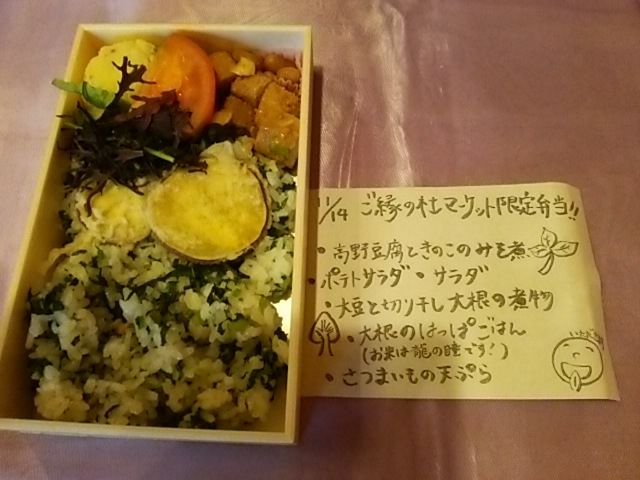 11/14 ご縁の杜マーケット限定弁当!!
・高野豆腐ときのこのみそ煮
・ポテトサラダ ・サラダ
・大豆と切り干し大根の煮物
・大根のはっぱごはん
(お米は龍の瞳です!)
・さつまいもの天ぷら